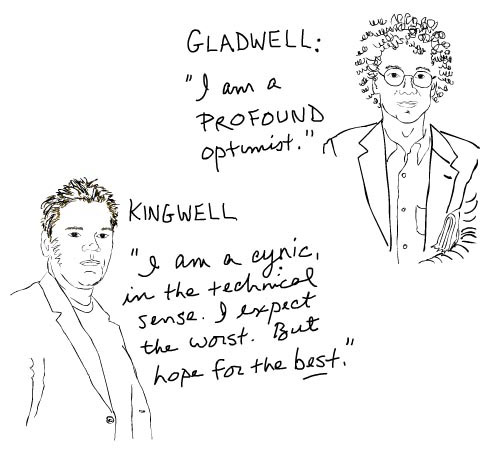 GLADWELL:
"I am a
PROFOUND
optimist."
KINGWELL
"I am a cynic,
in the technical
sense. I expect
the worst. But
hope for the best."